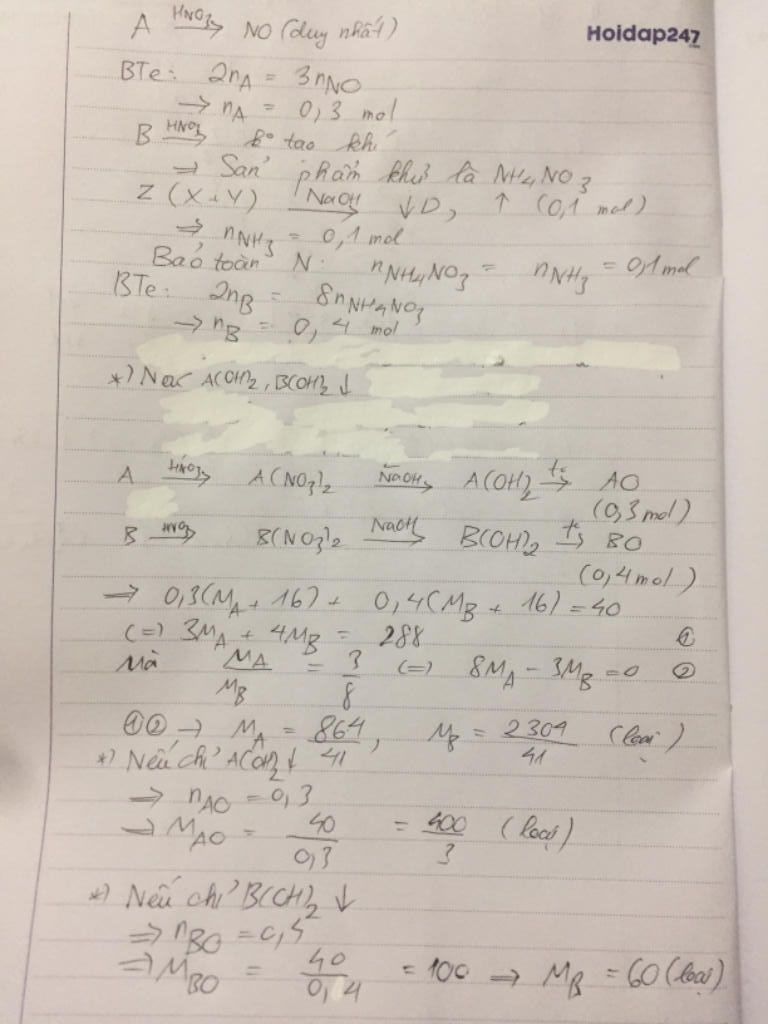 A \xrightarrow{HNO_3} NO (duy nhất)
Hoidap247
.com
BTe: 2n_A = 3n_{NO}
→ n_A = 0,3 mol
B \xrightarrow{HNO_3} ko tạo khí
⇒ Sản phẩm khử là NH_4NO_3
Z (X + Y) \xrightarrow{NaOH} ↓D, ↑ (0,1 mol)
⇒ n_{NH_3} = 0,1 mol
Bảo toàn N: n_{NH_4NO_3} = n_{NH_3} = 0,1 mol
BTe: 2n_B = 8n_{NH_4NO_3}
→ n_B = 0,4 mol
*) Nếu A(OH)_2, B(OH)_2 ↓
A \xrightarrow{HNO_3} A(NO_3)_2 \xrightarrow{NaOH} A(OH)_2 \xrightarrow{t°} AO
(0,3 mol)
B \xrightarrow{HNO_3} B(NO_3)_2 \xrightarrow{NaOH} B(OH)_2 \xrightarrow{t°} BO
(0,4 mol)
⇒ 0,3(M_A + 16) + 0,4(M_B + 16) = 40
(=) 3M_A + 4M_B = 288 ①
Mà \frac{M_A}{M_B} = \frac{3}{8} (=) 8M_A - 3M_B = 0 ②
①② → M_A = \frac{864}{41}, M_B = \frac{2304}{41} (loại)
*) Nếu chỉ A(OH)_2 ↓
⇒ n_{AO} = 0,3
⇒ M_{AO} = \frac{40}{0,3} = \frac{400}{3} (loại)
*) Nếu chỉ B(OH)_2 ↓
⇒ n_{BO} = 0,4
⇒ M_{BO} = \frac{40}{0,4} = 100 → M_B = 60 (loại)